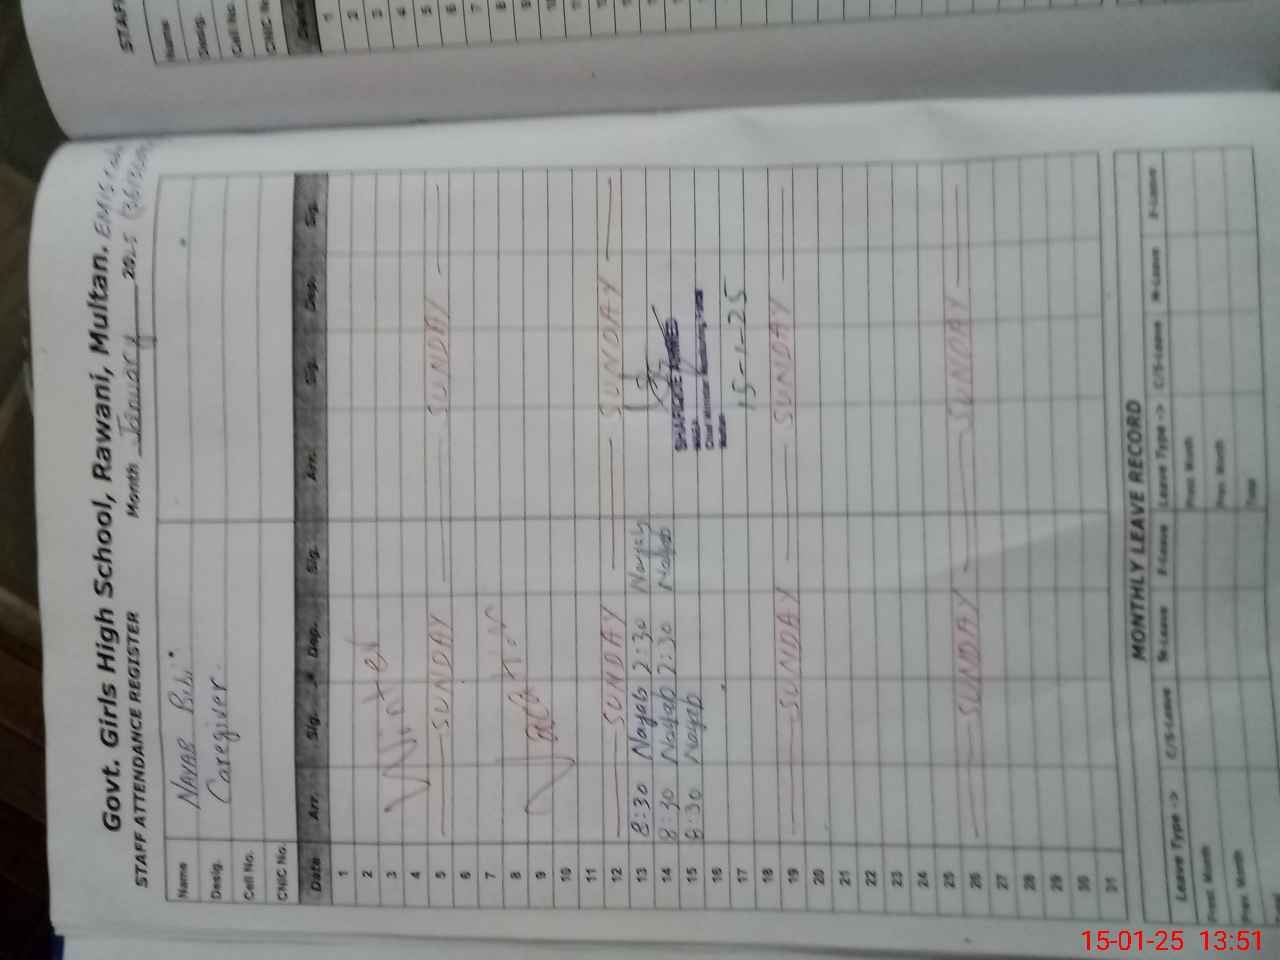 Govt. Girls High School, Rawani, Multan. EMIS
STAFF ATTENDANCE REGISTER Month January 2025
Name NAYAB Bibi
Desig. Caregiver
Cell No.
CNIC No.
Date Arr. Sig. Dep. Sig. Arr. Sig. Dep. Sig.
1
2 Winter
3
4
5 SUNDAY SUNDAY
6
7
8 Vacation
9
10
11
12 SUNDAY SUNDAY
13 8:30 Nayab 2:30 Nayab
14 8:30 Nayab 2:30 Nayab
15 8:30 Nayab
16
17 15-1-25
18
19 SUNDAY SUNDAY
20
21
22
23
24
25
26 SUNDAY SUNDAY
27
28
29
30
31
MONTHLY LEAVE RECORD
Leave Type -> C/S-Leave M-Leave E-Leave Leave Type -> C/S-Leave M-Leave E-Leave
Prest. Month Prest. Month
Prev. Month Prev. Month
Total
STAFF
Name
Desig.
Cell No.
CNIC No.
Date
1
2
3
4
5
6
7
8
9
15-01-25 13:51